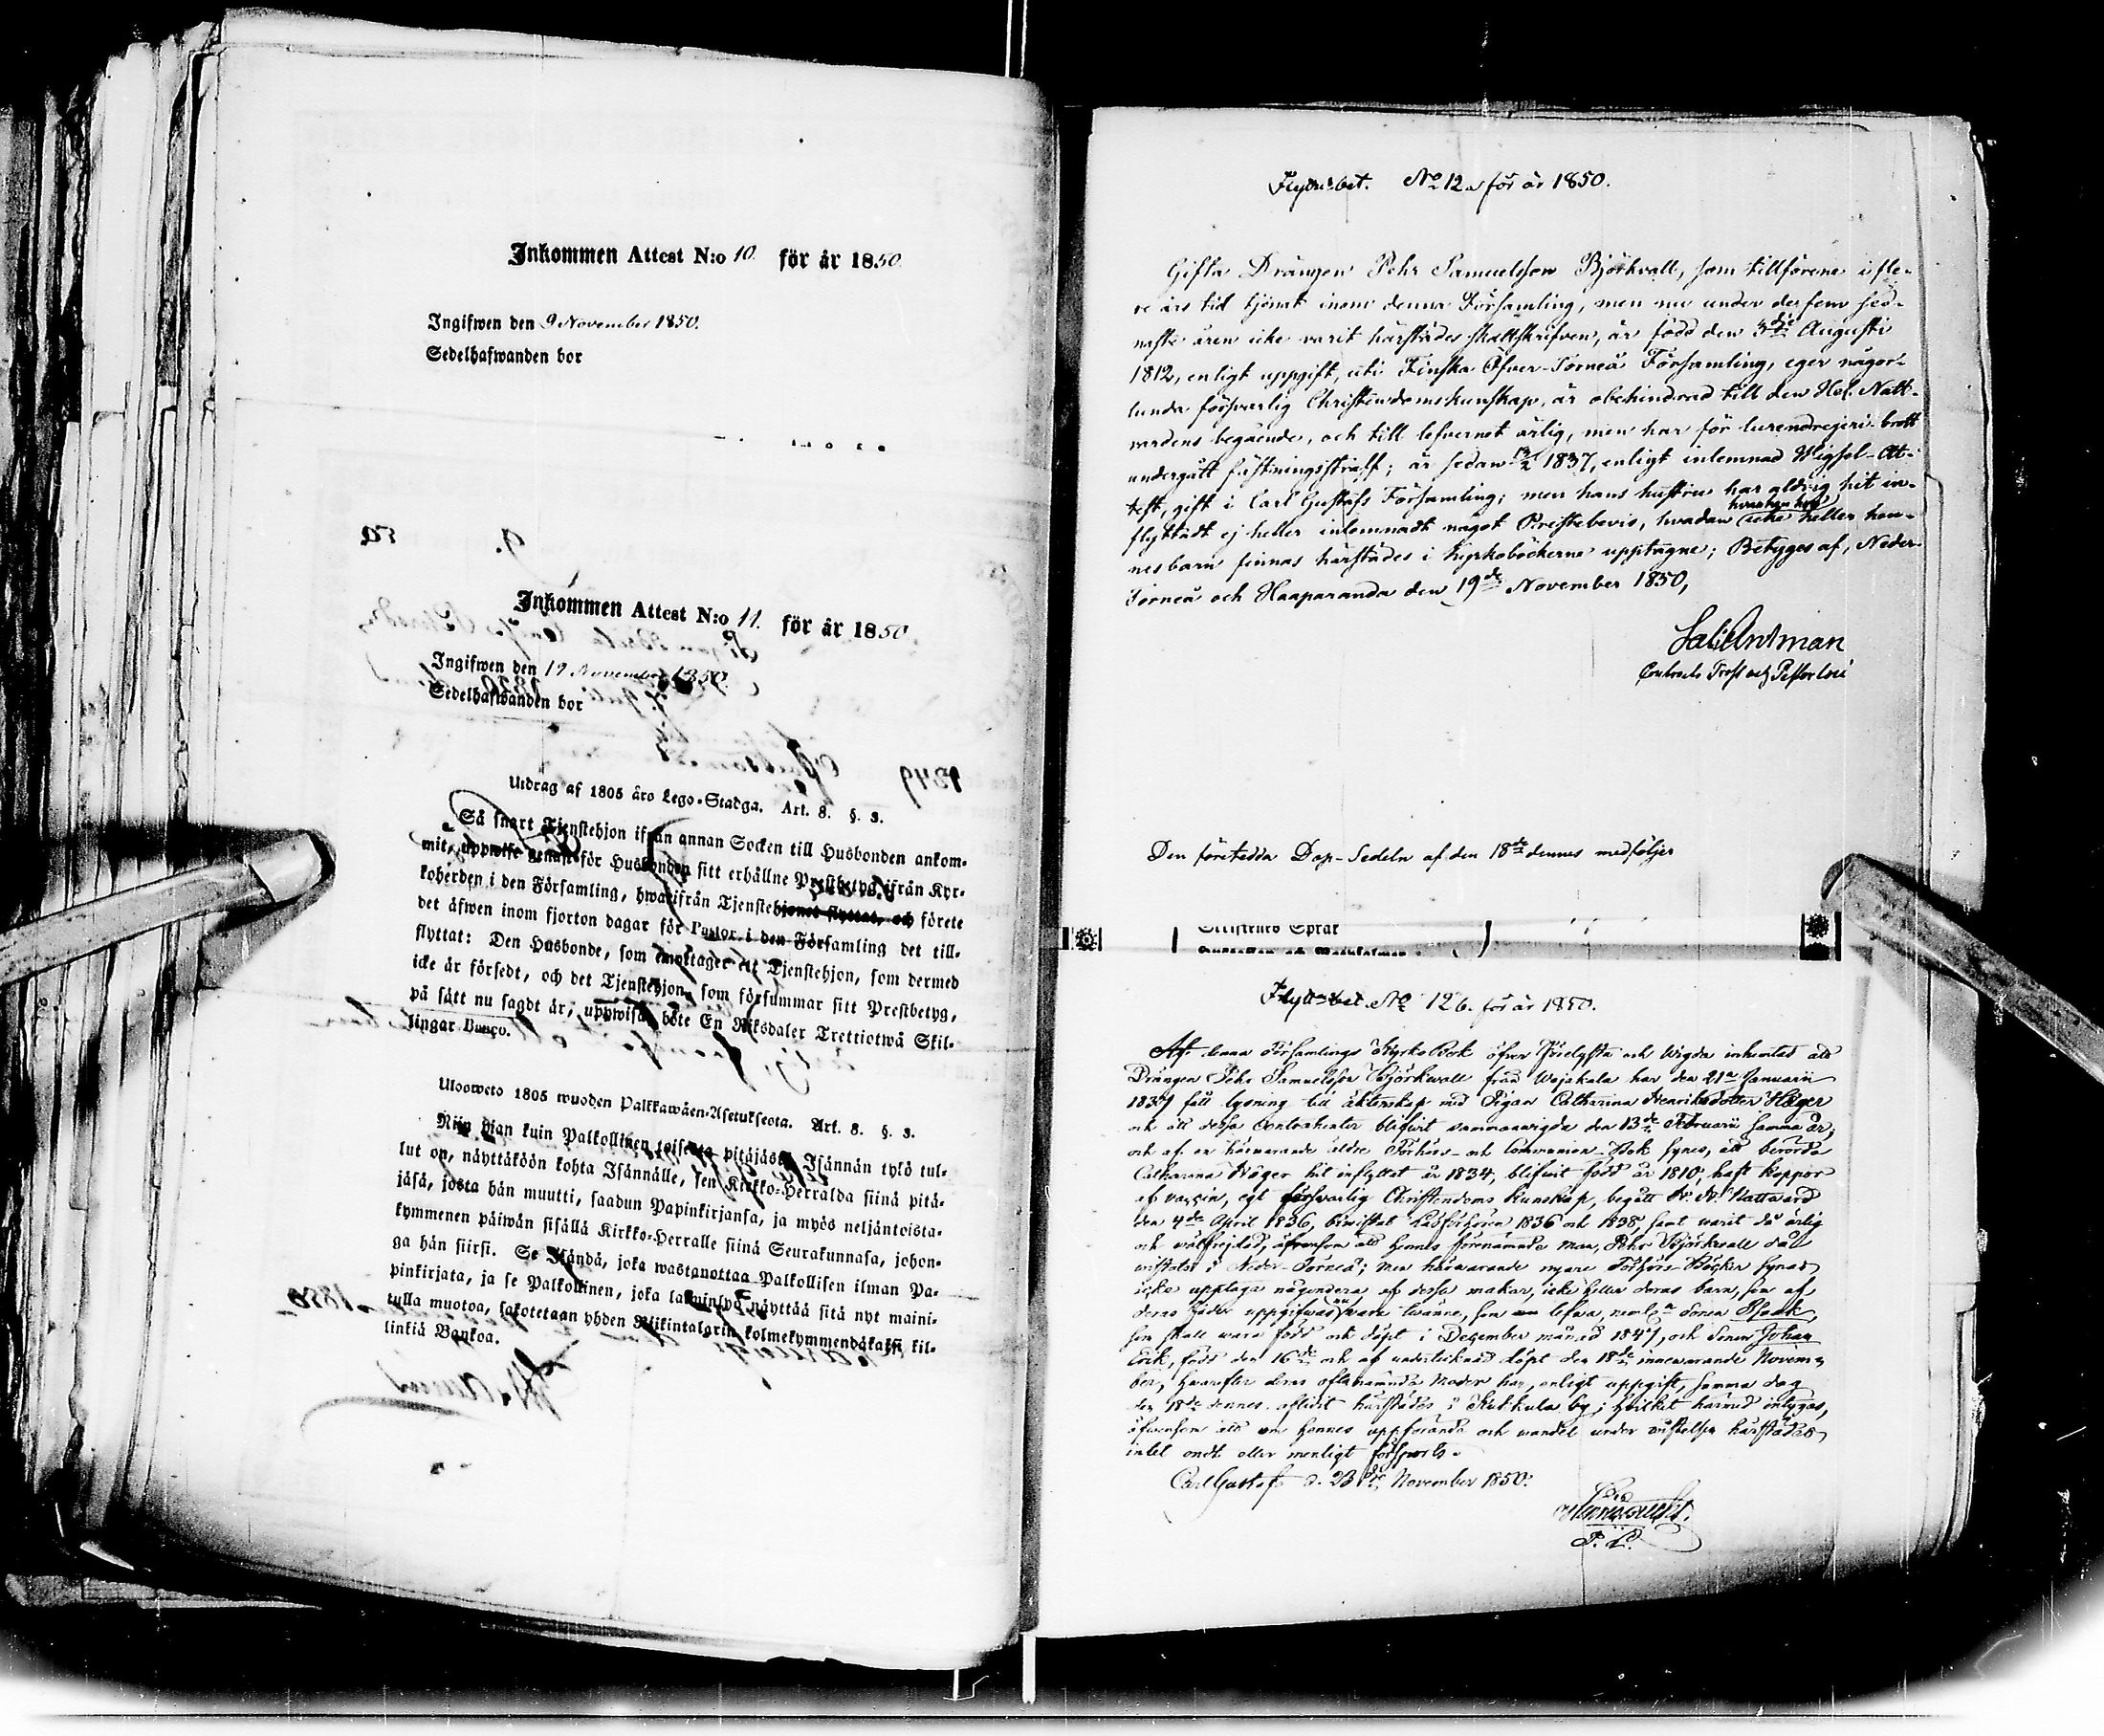 Inkommen Attest N:o 10. för år 1850
Ingifwen den 9 November 1850.
Sedelhafwanden bor
Inkommen Attest N:o 11. för år 1850
Ingifwen den 19 November 1850.
Sedelhafwanden bor
Utdrag af 1805 års Lego-Stadga. Art. 8. §. 3.
Så snart Tjenstehjon ifrån annan Socken till Husbonden ankom-
mit, uppwise genast för Husbonden sitt erhållne Prestbetyg ifrån Kyr-
koherden i den Församling, hwarifrån Tjenstehjonet flyttat, och förete
det äfwen inom fjorton dagar för Pastor i den Församling det till-
flyttat: Den Husbonde, som emottager ett Tjenstehjon, som dermed
icke är försedt, och det Tjenstehjon, som försummar sitt Prestbetyg,
på sätt nu sagdt är, uppwisa, böte En Riksdaler Trettiotwå Skil-
lingar Banco.
Ulosweto 1805 wuoden Palkkawäen-Asetuksesta. Art. 8. §. 3.
Niin pian kuin Palkollinen toisesta pitäjästä Isännän tykö tul-
lut on, näyttäköön kohta Isännälle, sen Kirkko-Herralda siinä pitä-
jäsä, josta hän muutti, saadun Papinkirjansa, ja myös neljäntoista-
kymmenen päiwän sisällä Kirkko-Herralle siinä Seurakunnasa, johon-
ga hän siirsi. Se Isändä, joka wastanottaa Palkollisen ilman Pa-
pinkirjata, ja se Palkollinen, joka laiminlyö näyttää sitä nyt maini-
tulla muotoa, sakotetaan yhden Riikintalarin kolmekymmendäkaksi kil-
linkiä Bankoa.
Flyttn.bet. No 12 a för år 1850.
Gifta Drängen Pehr Samuelsson Björkvall, som tillförene i fle-
re års tid tjenat inom denna Församling, men nu under de fem sed-
naste åren icke varit härstädes skattskrifven, är född den 3de Augusti
1812, enligt uppgift, uti Finska Öfver-Torneå Församling, eger någor-
lunda försvarlig Christendomskunskap, är obehindrad till den Hel. Natt-
vardens begående, och till lefvernet ärlig, men har för lurendrejeri-brott
undergått fästningsstraff; är sedan 13/2 1837, enligt inlemnad Wigsel-At-
test, gift i Carl Gustafs Församling; men hans hustru har aldrig hit in-
flyttadt ej heller inlemnadt något Prestebevis, hvadan hvarken hon icke heller hen-
nes barn finnas härstädes i kyrkoböckerna upptagne; Betyges af, Neder-
Torneå och Haaparanda den 19de November 1850,
Contracts Prost och Pastor loci
Den företedda Dop-Sedeln af den 18de dennes medföljer
Flyttn.bet. No 12 b. för år 1850.
Af denna Församlings Kyrko Bok öfver Trolofta och Wigda inhemtas att
Drängen Pehr Samuelsson Björkwall från Wojakala har den 21a Januarii
1837 fått lysning till äktenskap med Pigan Catharina Henriksdotter Häger
och att dessa Contrahenter blifwit sammanwigda den 13de Februarii samma år;
och af en härwarande äldre Förhörs- och Communion-Bok synes, att berörda
Catharina Häger hit inflyttat år 1834, blifwit född år 1810, haft koppor
af vaccin, egt försvarlig Christendoms kunskap, begått H. H. Nattward
den 4de April 1836, bewistat Läsförhören 1836 och 1838, samt warit då ärlig
och wälfrejdad, äfwensom att hennes förenämnde man, Pehr Björkwall då
wistats i Neder-Torneå; men härwarande nyare Förhörs-Böcker synas
icke upptaga någondera af dessa makar, icke heller deras barn, som af
deras fader uppgifwas nu wara twänne, som lefwa, neml. Sonen Isaak,
som skall wara född och döpt i December månad 1847, och Sonen Johan
Erik, född den 16de och af undertecknad döpt den 18de innewarande Novem-
ber, hwarefter deras oftanämnda Moder har, enligt uppgift, samma dag
den 18de dennes aflidit härstädes i Kukkola by; hvilket härmed intygas,
äfwensom att om hennes uppförande och wandel under wistelsen härstädes
intet ondt eller menligt försports.
Carl Gustaf d. 23de November 1850.
P. L.